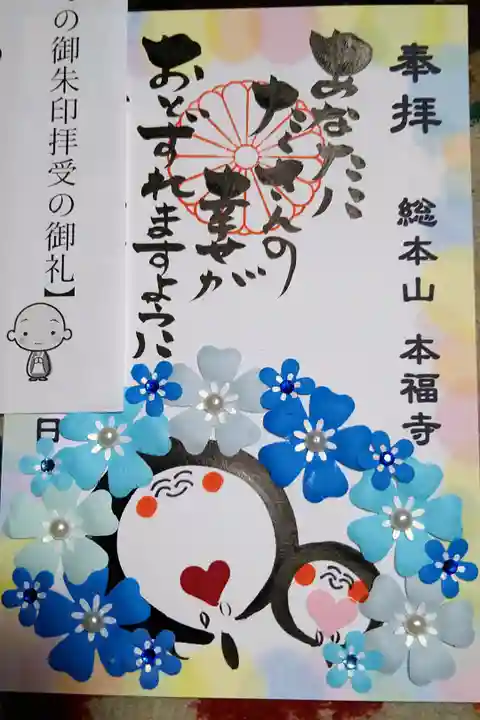 奉拝
総本山 本福寺
あなたに
たくさんの
幸せが
おとずれますように
日
の御朱印拝受の御礼】